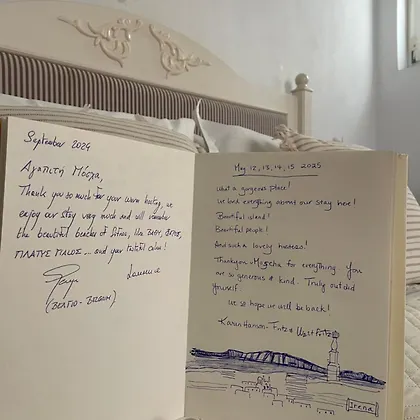 September 2024
Αγαπητή Μόσχα,
Thank you so much for your warm hosting, we
enjoy our stay very much and will remember
the beautiful beaches of Sifnos, like ΒΑΘΥ,
ΠΛΑΤΥΣ ΓΙΑΛΟΣ ... and your tasteful
Laurence
May 12, 13, 14, 15 2025
What a gorgeous place!
We loved everything about our stay here!
Beautiful island!
Beautiful people!
And such a lovely hostess!
Thankyou Moscha for everything You
are so generous & kind. Truly outdid
yourself.
We so hope we will be back!
Karen Hamon - Fritz &
Irena